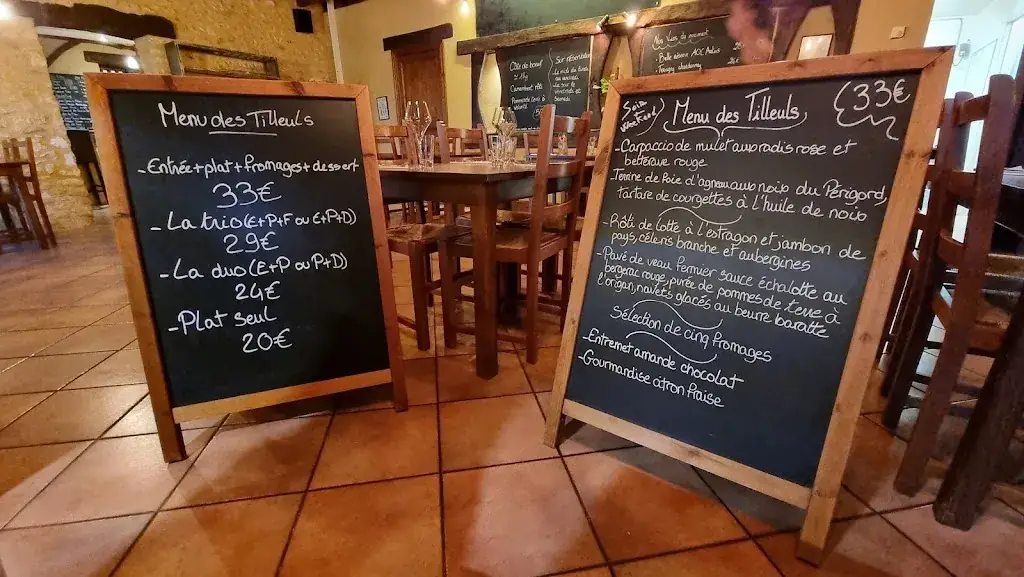 Menu des Tilleuls
-Entrée+plat+fromages+dessert
33€
-La trio(E+P+F ou E+P+D)
29€
-La duo(E+P ou P+D)
24€
-Plat seul
20€
Soir
Menu des Tilleuls
33€
-Carpaccio de mulet aux radis rose et
betterave rouge
-Terrine de foie d'agneau aux noix du Périgord,
tartare de courgettes à l'huile de noix
-Rôti de Lotte à l'estragon et jambon de
pays, céleris branche et aubergines
-Pavé de veau fermier sauce échalotte au
bergerac rouge, purée de pommes de terre à
l'origan, navets glacés au beurre baratte
Sélection de cinq fromages
-Entremet amande chocolat
-Gourmandise citron fraise
Côte de boeuf
Camembert rôti
Sur réservation
Nos Vins du moment